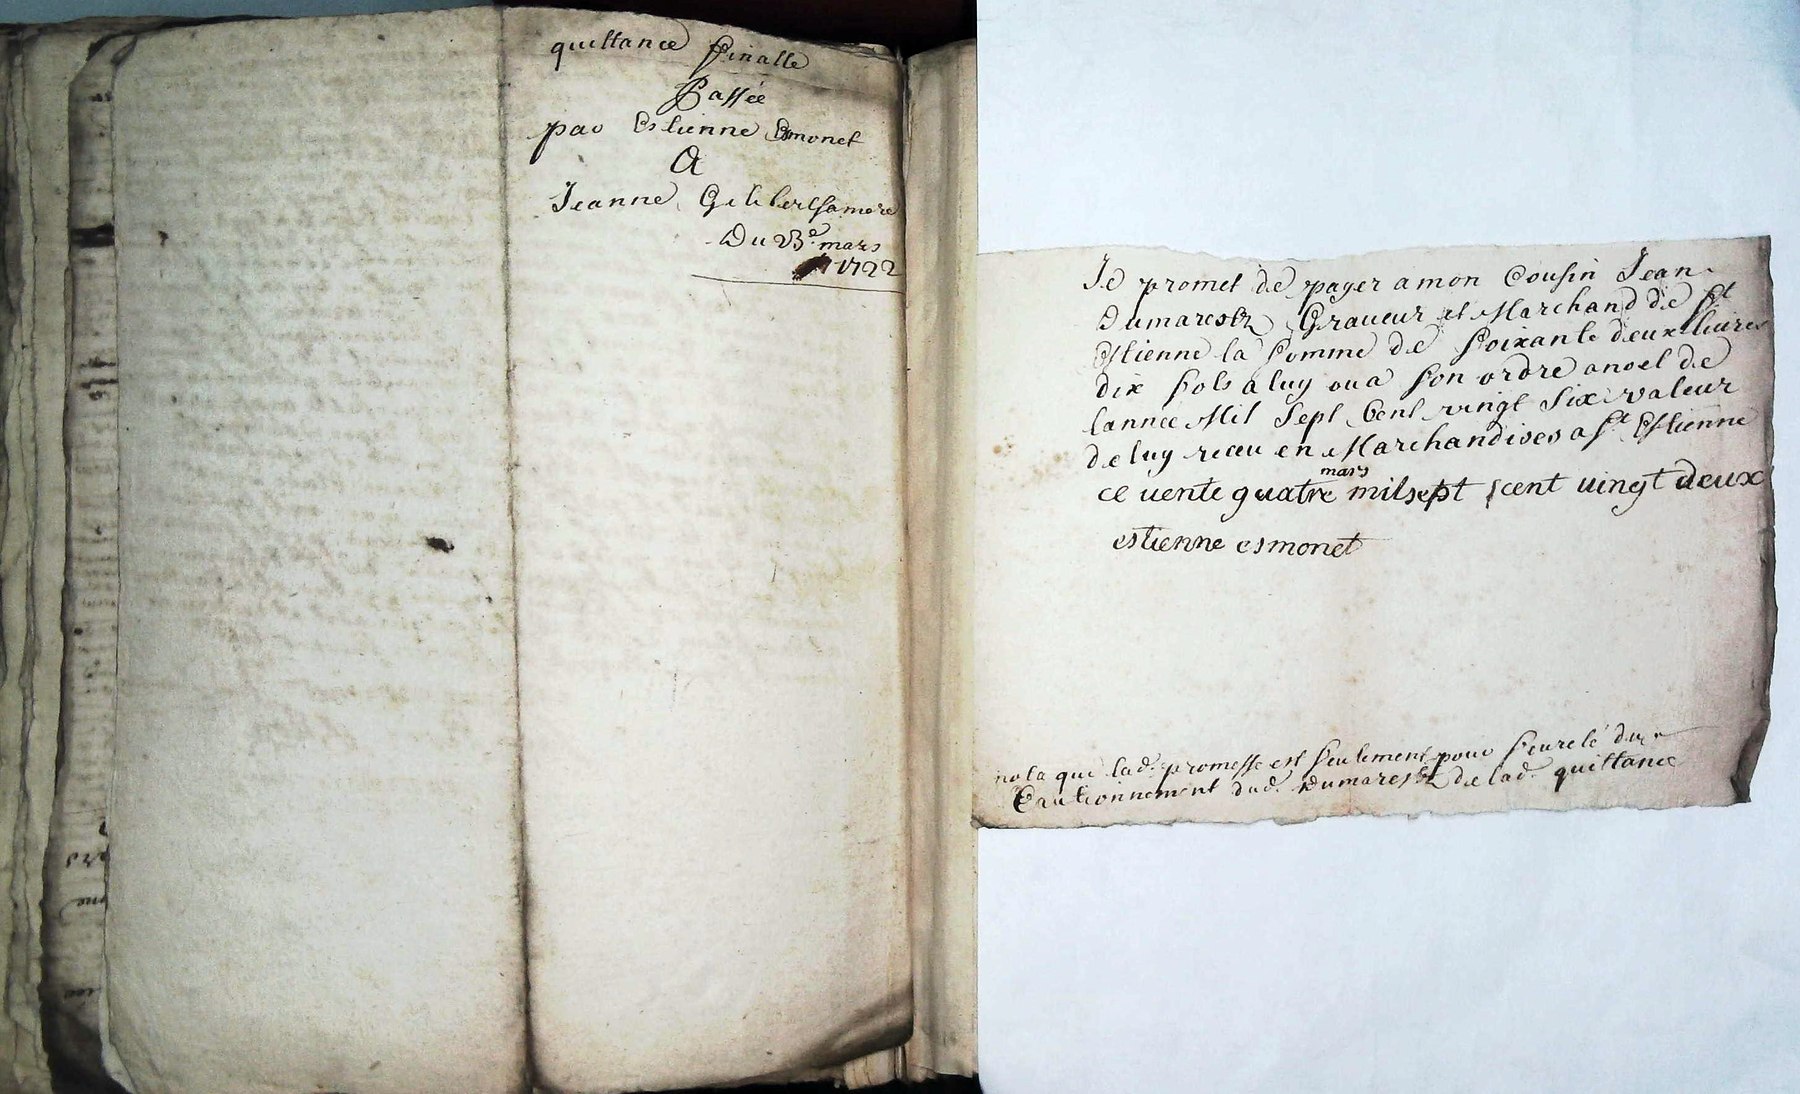 quittance finalle
Passée
par Estienne Esmonet
A
Jeanne Gilibert sa mere
Du 23e. mars
1722
Je promet de payer a mon Cousin Jean
Dumarestz Graueur et Marchand de St
Estienne la somme de soixante deux liures
dix sols a luy ou a son ordre a noel de
lannee Mil sept Cent vingt six valeur
de luy receu en Marchandises a St Estienne
mars
ce uente quatre milsept scent uingt deux
estienne esmonet
nota que lad. promesse est seulement pour seureté du
Cautionnement dud. Dumarestz de lad. quittance